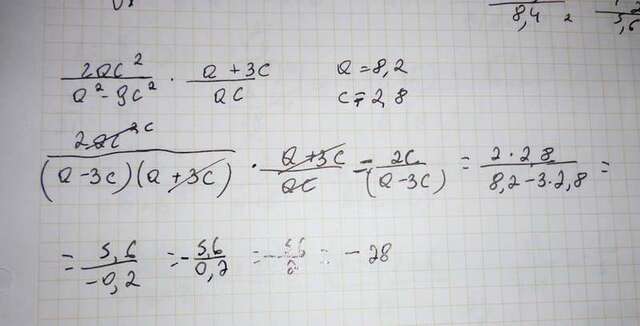 8,4 2 5,6
2ac² / a² - 9c² · a + 3c / ac a = 8,2
c = 2,8
2ac² c / (a - 3c)(a + 3c) · a + 3c / ac = 2c / (a - 3c) = 2 · 2,8 / 8,2 - 3 · 2,8 =
= 5,6 / -0,2 = - 5,6 / 0,2 = - 56 / 2 = - 28